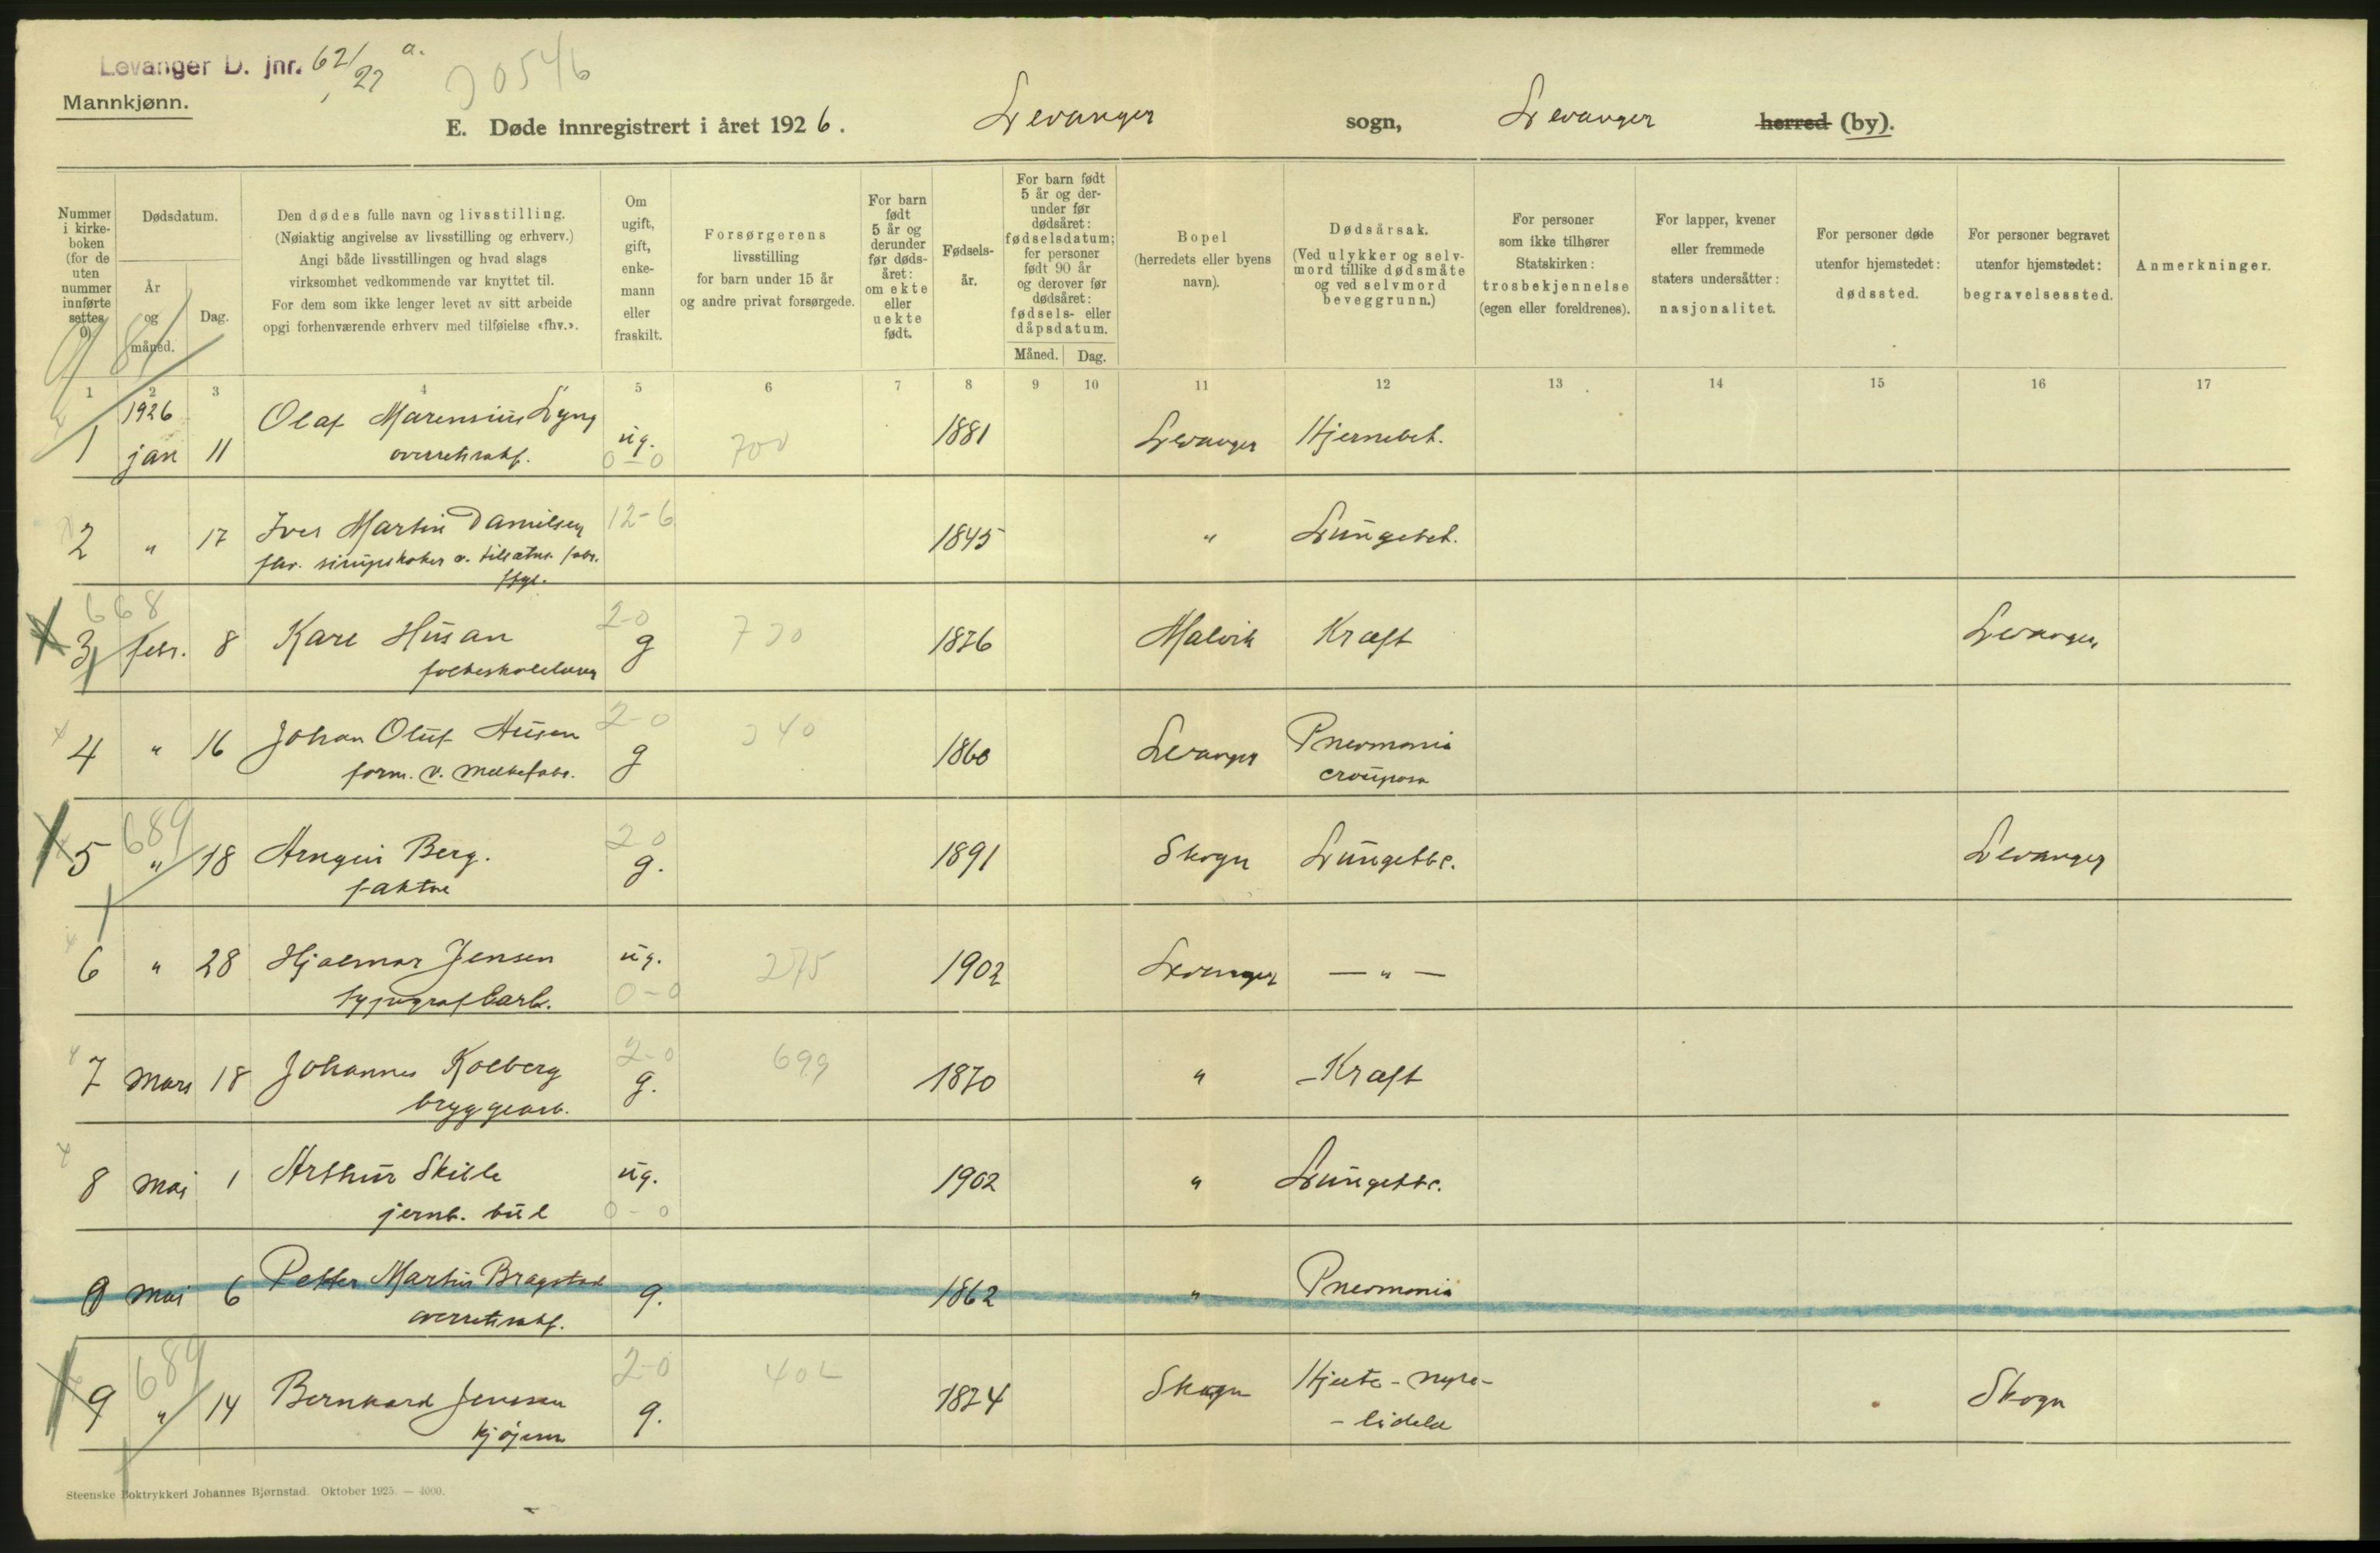 Levanger D. jnr. 62/27 a.
Mannkjønn.
E. Døde innregistrert i året 1926. Levanger sogn, Levanger herred (by).
Nummer i kirke-boken (for de uten nummer innførte settes 0)
Dødsdatum.
År og måned.
Dag.
Den dødes fulle navn og livsstilling.
(Nøiaktig angivelse av livsstilling og erhverv.)
Angi både livsstillingen og hvad slags
virksomhet vedkommende var knyttet til.
For dem som ikke lenger levet av sitt arbeide
opgi forhenværende erhverv med tilføielse «fhv.».
Om ugift, gift, enke-mann eller fraskilt.
Forsørgerens
livsstilling
for barn under 15 år
og andre privat forsørgede.
For barn født 5 år og derunder før døds-året: om ekte eller uekte født.
Fødsels-år.
For barn født 5 år og der-under før dødsåret: fødselsdatum; for personer født 90 år og derover før dødsåret: fødsels- eller dåpsdatum.
Måned. Dag.
Bopel
(herredets eller byens
navn).
Dødsårsak.
(Ved ulykker og selv-
mord tillike dødsmåte
og ved selvmord
beveggrunn.)
For personer
som ikke tilhører
Statskirken:
trosbekjennelse
(egen eller foreldrenes).
For lapper, kvener
eller fremmede
staters undersåtter:
nasjonalitet.
For personer døde
utenfor hjemstedet:
dødssted.
For personer begravet
utenfor hjemstedet:
begravelsessted.
Anmerkninger.
1 2 3 4 5 6 7 8 9 10 11 12 13 14 15 16 17
1926
1 jan 11 Olaf Marensius Lyng ug. 700 1881 Levanger Hjernebet.
overretssakf. 0-0
2 " 17 Iver Martin Danielsen 12-6 1845 " Lungebet.
fhv. sirupskoker v.
668
3 febr. 8 Karl Husan 2-0 g 700 1876 Malvik Kræft Levanger
folkeskolelærer
4 " 16 Johan Oluf Husen 2-0 g 1860 Levanger Pneomonia
form. v. melkefabr. crouposa
689
5 " 18 Arngrim Berg. 2 0 g. 1891 Skogn Lungetbc. Levanger
faktor
6 " 28 Hjalmar Jensen ug. 275 1902 Levanger — " —
typograf 0-0
7 Mars 18 Johannes Kolberg 2-0 g. 699 1870 " Kræft
bryggearb.
8 Mai 1 Arthur Skille ug. 1902 " Lungetbc.
jernb. 0-0
9 Mai 6 Petter Martin Bragstad g. 1862 " Pneomonia
overretssakf.
689
9 " 14 Bernhard Jenssen 2-0 g. 402 1874 Skogn Hjerte- nyre- Skogn
kjøpm. - lidelse
Steenske Boktrykkeri Johannes Bjørnstad. Oktober 1925. — 4000.